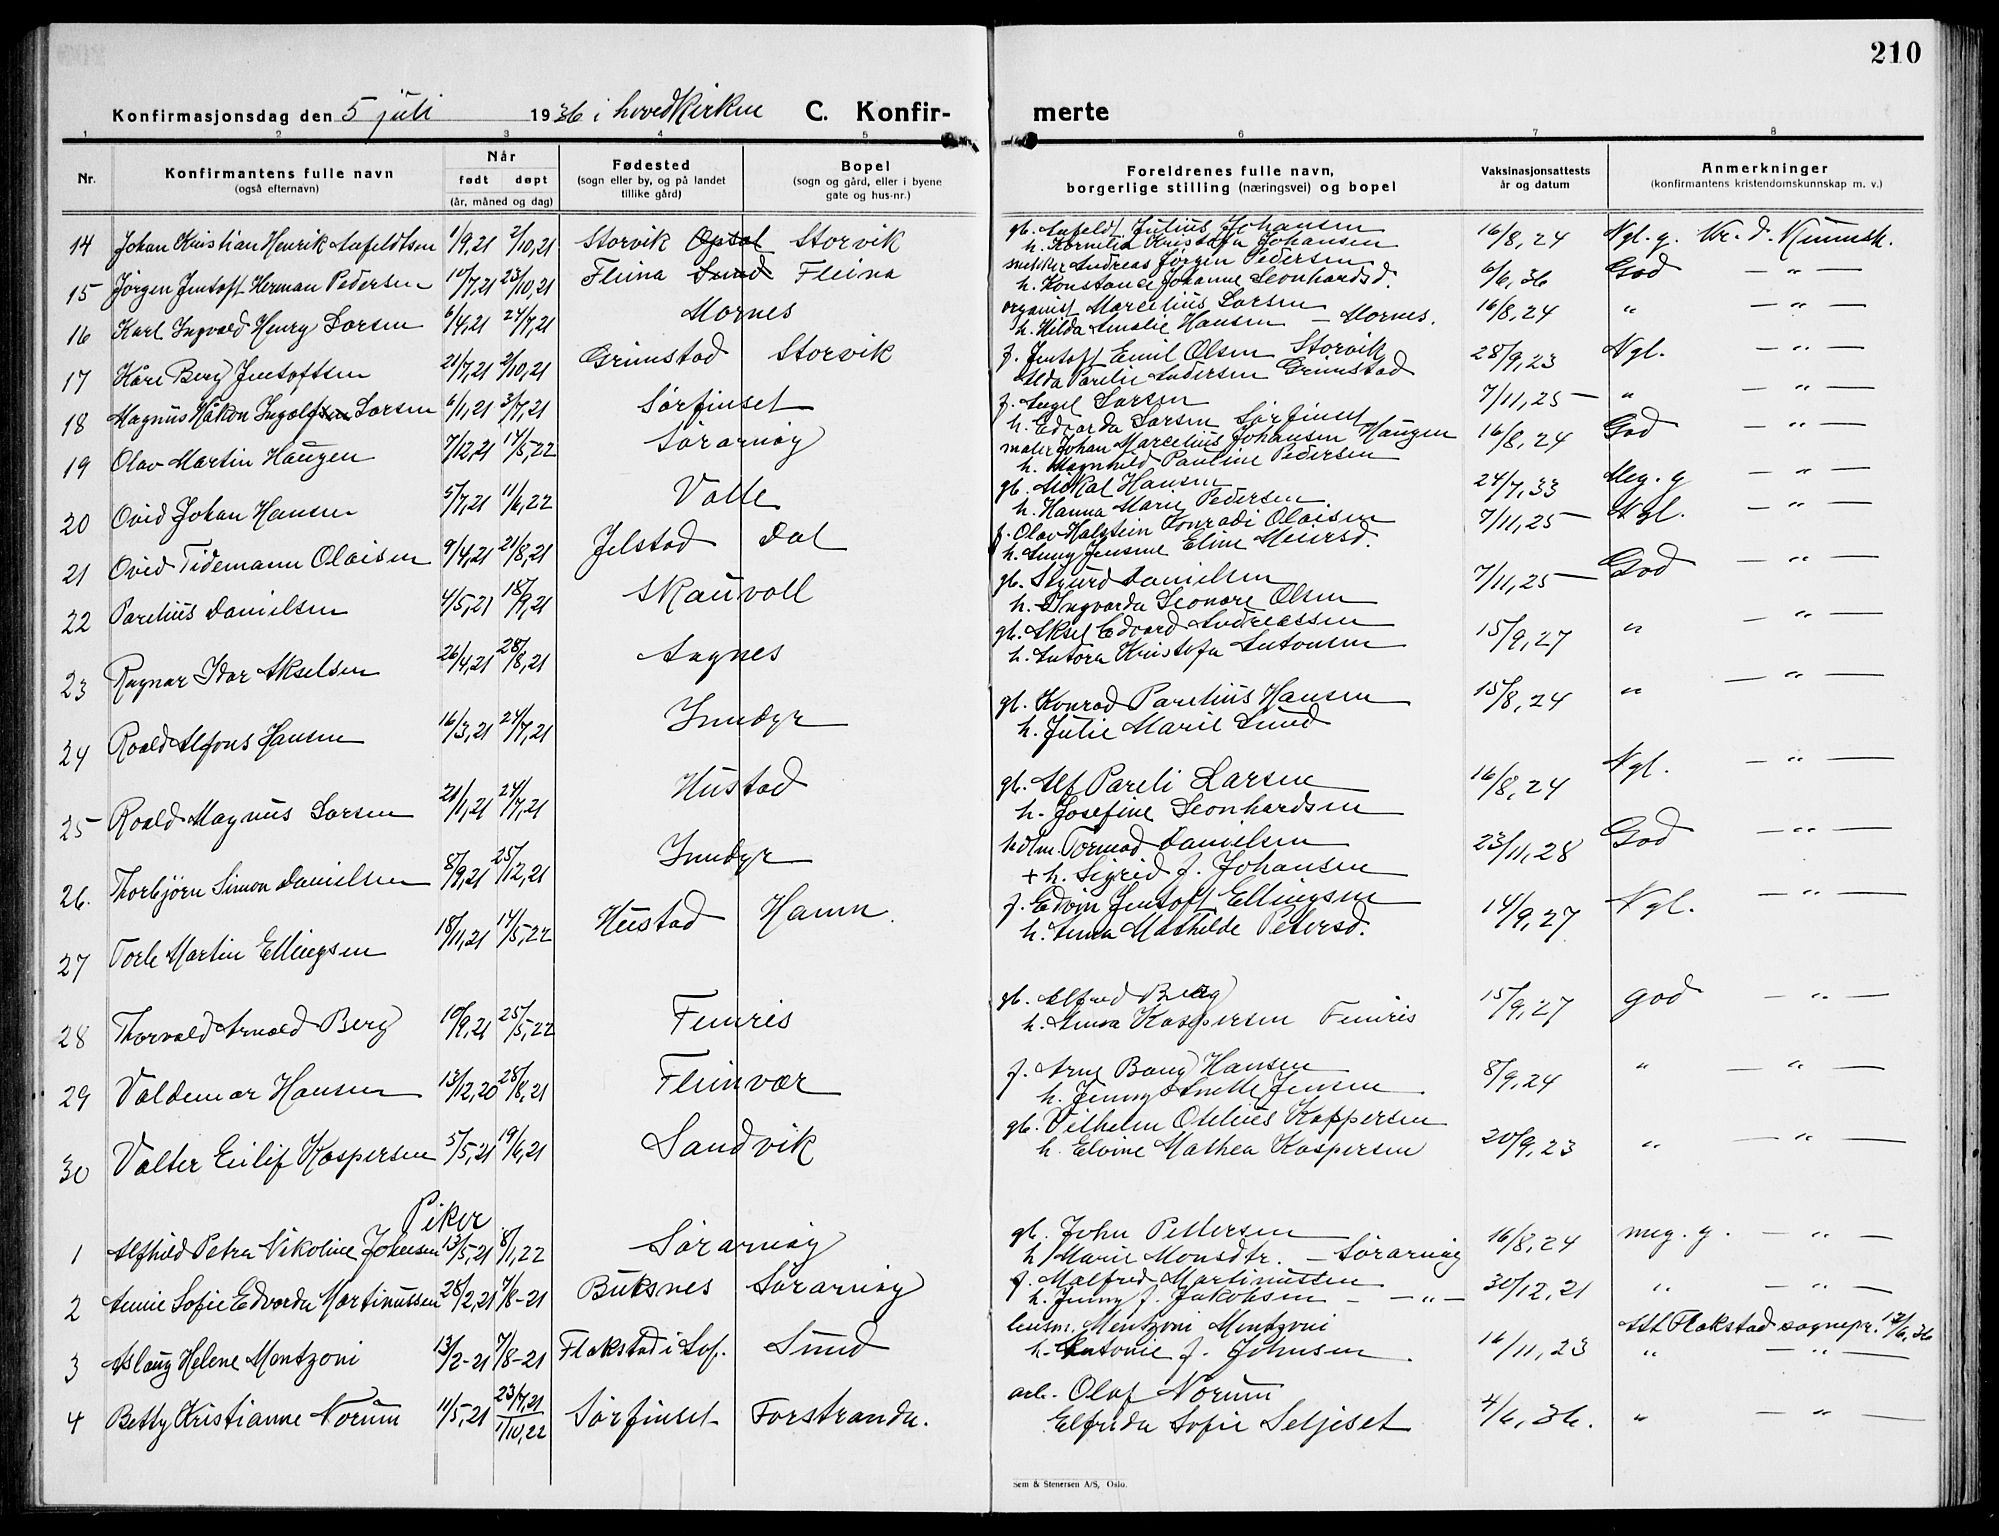 210
Konfirmasjonsdag den 5 juli 1936 i hovedkirken C. Konfir-
merte
1 2 3 4 5 6 7 8
Nr. Konfirmantens fulle navn (også efternavn) Når født døpt (år, måned og dag) Fødested (sogn eller by, og på landet tillike gård) Bopel (sogn og gård, eller i byene gate og hus-nr.) Foreldrenes fulle navn, borgerlige stilling (næringsvei) og bopel Vaksinasjonsattests år og datum Anmerkninger (konfirmantens kristendomskunnskap m. v.)
14 Johan Kristian Henrik Anfeldtsen 1/9,21 2/10,21 Storvik Opsal Storvik gb. Anfeldt Julius Johansen 16/8,24 Ngl. g. Kr. d. Kunnsk.
h. Kornelia Kristofa Johansen
15 Jörgen Jentoft Herman Pedersen 10/7,21 23/10,21 Fleina Sund Fleina Andreas Jörgen Pedersen 6/6,36 God — " —
h. Konstance Johanne Leonhardsd.
16 Karl Ingvald Henry Larsen 6/4,21 24/7,21 Mornes organist Marcelius Larsen 16/8,24 " — " —
h. Hilda Amalie Hansen — Mornes.
17 Kåre Berg Jentoftsen 21/7,21 2/10,21 Grimstad Storvik f. Jentoft Emil Olsen Storvik 28/9,23 Ngl. — " —
Alda Parelie Andersen Grimstad
18 Magnus Håkon Ingolfsen Larsen 6/1,21 3/7,21 Sörfinset f. Angel Larsen 7/11,25 — " — " —
h. Edvarda Larsen Sörfinset
19 Olav Martin Haugen 7/12,21 14/5,22 Sörarnöy maler Johan Marcelius Johansen Haugen 16/8,24 God — " —
h. Magnhild Pauline Pedersen
20 Ovid Johan Hansen 5/7,21 11/6,22 Valle gb. Mikal Hansen 24/7,33 Meg. g — " —
h. Hanna Marie Pedersen
21 Ovid Tidemann Olaisen 9/4,21 21/8,21 Jelstad Dal f. Olav Halstein Konradi Olaisen 7/11,25 — Ngl. — " —
h. Anny Jensine Eline Meiersd.
22 Parelius Danielsen 4/5,21 18/9,21 Skauvoll gb. Sigurd Danielsen 7/11,25 — God — " —
h. Ingvarda Leonore Olsen
23 Ragnar Idar Akselsen 26/4,21 28/8,21 Angnes gb. Aksel Edvard Andreassen 15/9,27 " — " —
h. Antora Kristofa Antonsen
24 Roald Alfons Hansen 16/3,21 24/7,21 Inndyr gb. Konrad Parelius Hansen 15/8,24 " — " —
h. Julie Marie Sund
25 Roald Magnus Larsen 21/1,21 24/7,21 Hustad gb. Alf Pareli Larsen 16/8,24 Ngl. — " —
h. Josefine Leonhardsen
26. Thorbjörn Simon Danielsen 8/9,21 25/12,21 Inndyr hdlm. Tormod Danielsen 23/11,28 God — " —
+ h. Sigrid f. Johansen
27 Torle Martin Ellingsen 18/11,21 14/5,22 Hustad Hamn. f. Edvin Jentoft Ellingsen 14/9,27 Ngl. — " —
h. Anna Mathilde Petersd.
28 Thorvald Arnold Berg 10/9,21 25/5,22 Femris gb. Alfred Berg 15/9,27 god — " —
h. Anna Kaspersen Femris
29 Valdemar Hansen 13/12,20 28/8,21 Fleinvær f. Arne Bang Hansen 8/9,24 " — " —
h. Jenny Anette Jensen
30 Valter Eilif Kaspersen 5/5,21 19/6,21 Sandvik gb. Vilhelm Otelius Kaspersen 20/9,23 " — " —
h. Elvine Mathea Kaspersen
Piker
1 Alfhild Petra Nikoline Johnsen 13/5,21 8/1,22 Sörarnöy gb. John Pettersen 16/8,24 meg. g. — " —
h. Marie Monsdtr. — Sörarnöy
2 Annie Sofie Edvarda Martinussen 28/2,21 7/8-21 Buksnes Sörarnöy f. Malfred Martinussen 30/12,21 " — " —
h. Jenny f. Jakobsen — — " —
3 Aslaug Helene Mentzoni 13/2-21 7/8-21 Flakstad i Lof. Sund lensm. Mentzoni Mentzoni 16/11,23 Att. Flakstad sognepr. 12/6,36
h. Antonie f. Johnsen. " — " —
4 Betty Kristianne Norum 11/5,21 23/7,21 1/10,22 Sörfinset Forstranda. arb. Olaf Norum 4/6,36. " — " —
Elfrida Sofie Seljeset
Sem & Stenersen A/S, Oslo.